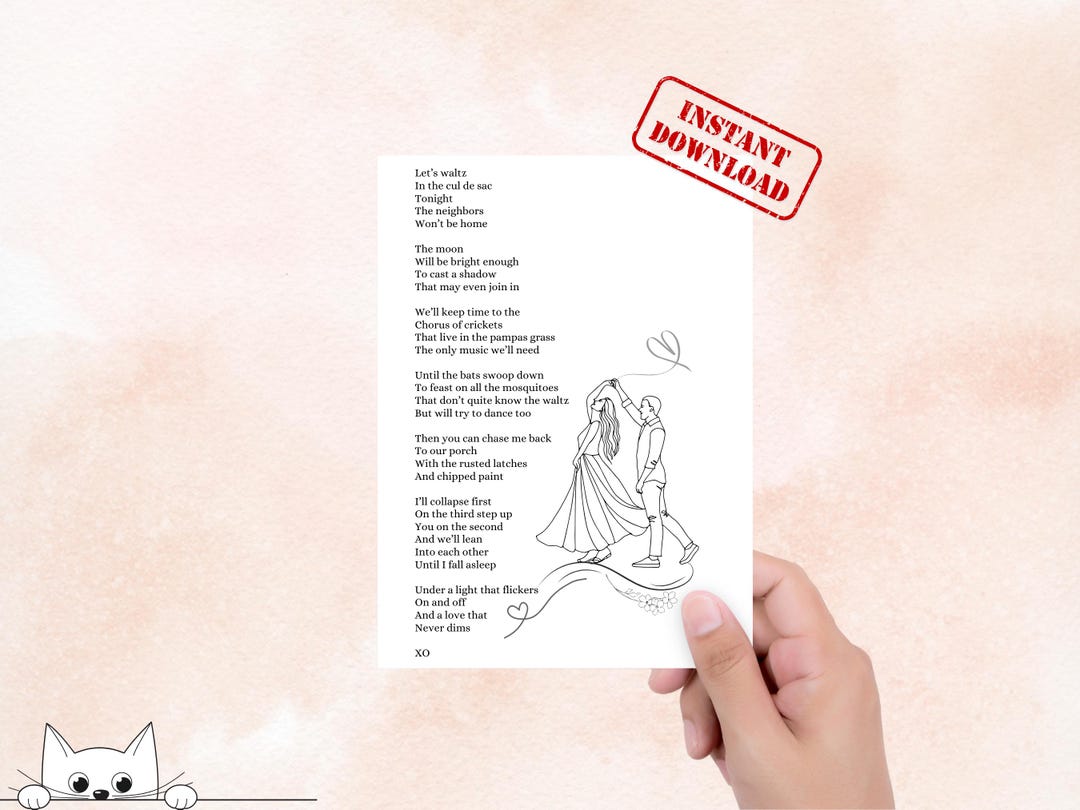 INSTANT
DOWNLOAD
Let’s waltz
In the cul de sac
Tonight
The neighbors
Won’t be home
The moon
Will be bright enough
To cast a shadow
That may even join in
We’ll keep time to the
Chorus of crickets
That live in the pampas grass
The only music we’ll need
Until the bats swoop down
To feast on all the mosquitoes
That don’t quite know the waltz
But will try to dance too
Then you can chase me back
To our porch
With the rusted latches
And chipped paint
I’ll collapse first
On the third step up
You on the second
And we’ll lean
Into each other
Until I fall asleep
Under a light that flickers
On and off
And a love that
Never dims
XO